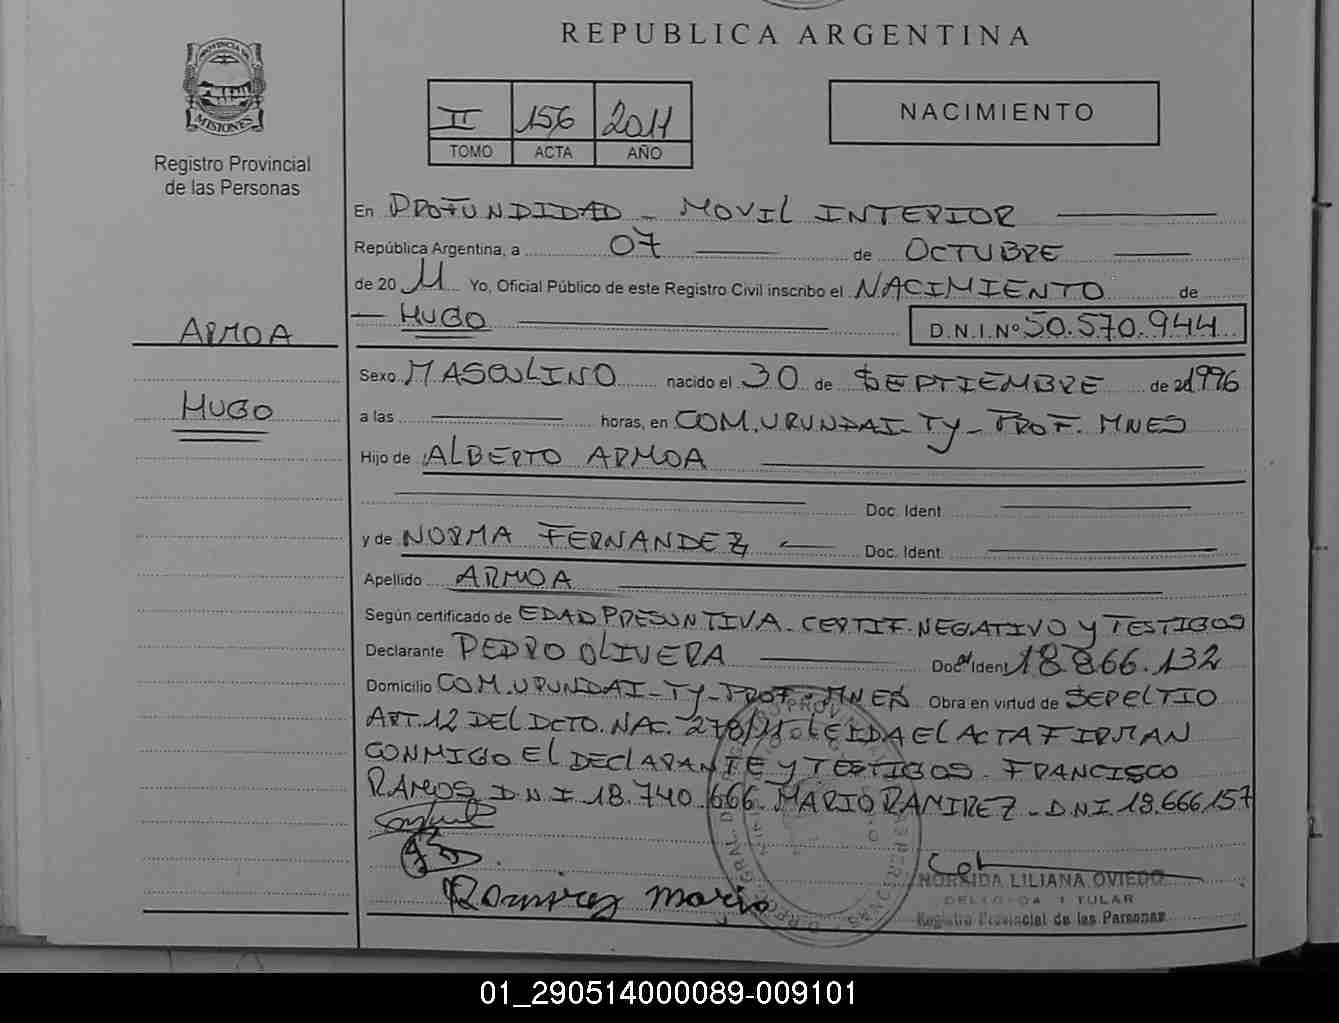 REPUBLICA ARGENTINA
PROVINCIA DE
MISIONES
Registro Provincial
de las Personas
II 156 2011
TOMO ACTA AÑO
NACIMIENTO
En PROFUNDIDAD - MOVIL INTERIOR
República Argentina, a 07 de OCTUBRE
de 20 11 Yo, Oficial Público de este Registro Civil inscribo el NACIMIENTO de
HUGO D.N.I.Nº 50.570.944
ARMOA
HUGO
Sexo MASCULINO nacido el 30 de SEPTIEMBRE de 1996
a las horas, en COM. URUNDAI-TY- PROF. MNES
Hijo de ALBERTO ARMOA
Doc. Ident
y de NORMA FERNANDEZ Doc. Ident
Apellido ARMOA
Según certificado de EDAD PRESUNTIVA. CERTIF. NEGATIVO Y TESTIGOS
Declarante PEDRO OLIVERA Doc. Ident 18.866.132
Domicilio COM. URUNDAI-TY- PROF. MNES Obra en virtud de SEPELTIO
ART. 12 DEL DCTO. NAC. 278/11. LEIDA EL ACTA FIRMAN
CONMIGO EL DECLARANTE Y TESTIGOS. FRANCISCO
RAMOS D.N.I. 18.740.666. MARIO RAMIREZ - D.N.I. 18.666.157
Ramirez Mario
NORAIDA LILIANA OVIEDO
DELEGADA TITULAR
Registro Provincial de las Personas
01_290514000089-009101